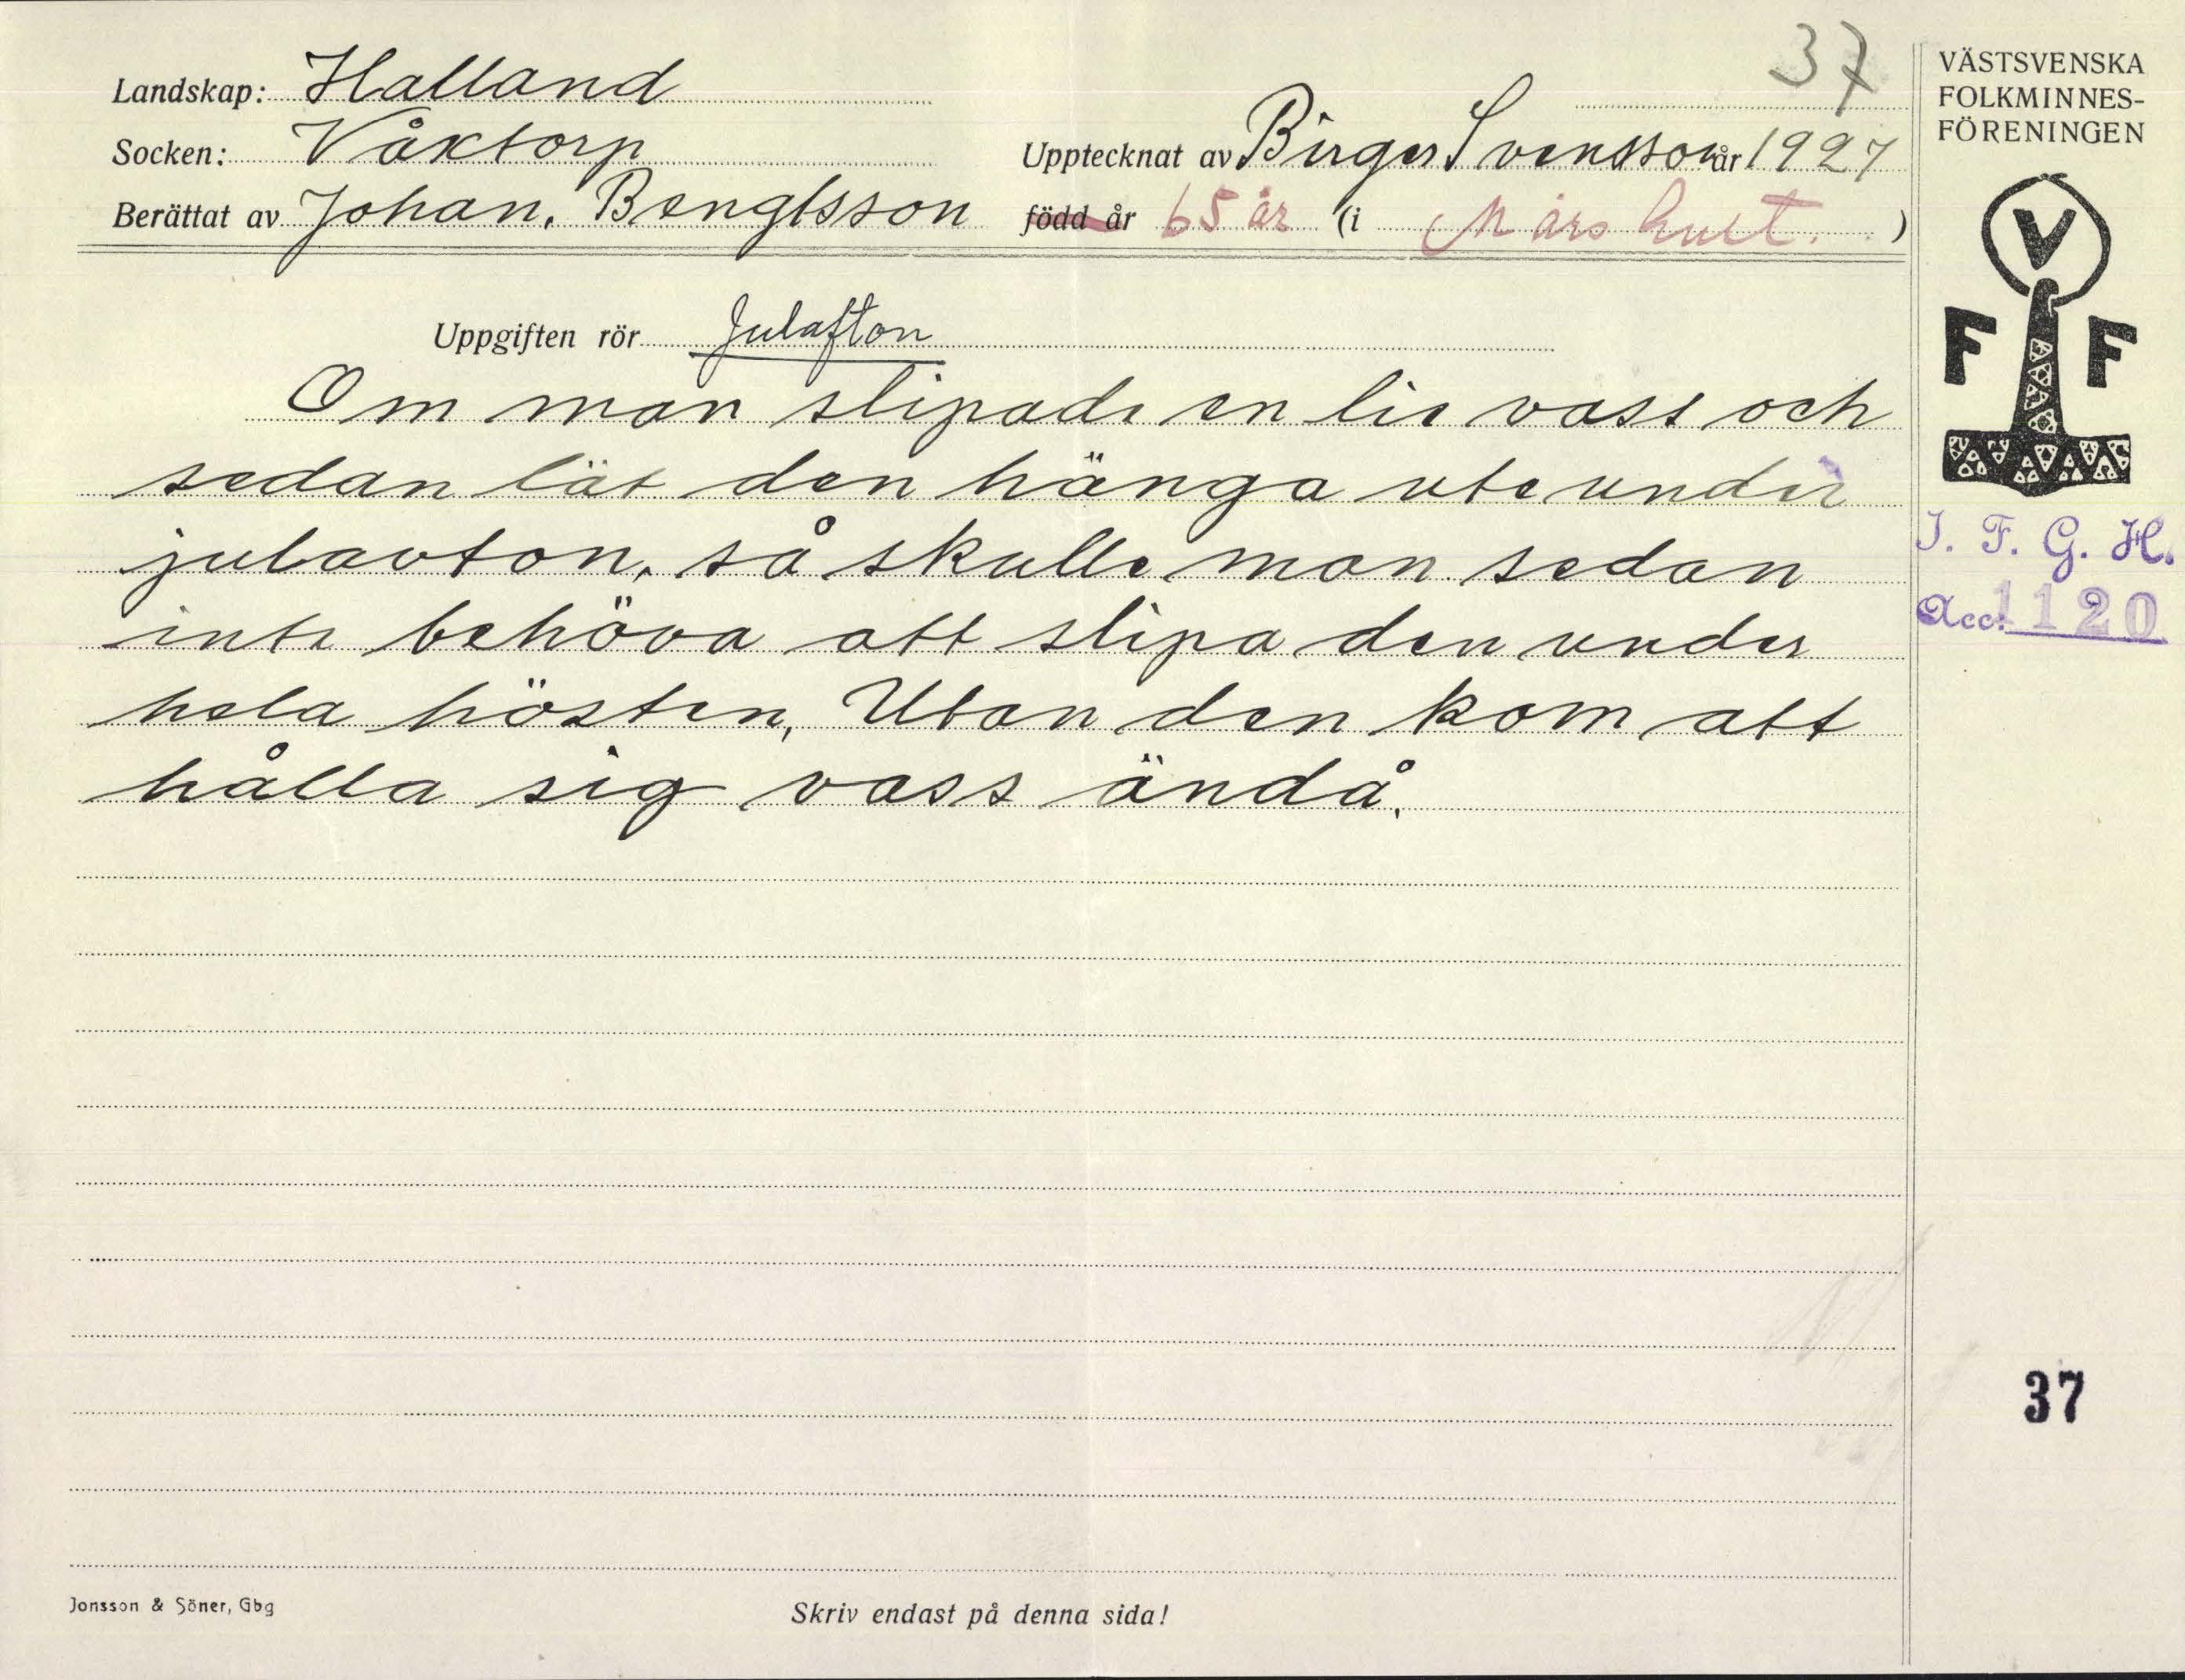 37
Landskap: Halland
Socken: Våxtorp
Upptecknat av Birger Svensson år 1927
Berättat av Johan. Bengtsson född år 65 år (i Mårshult. )
Uppgiften rör Julafton
Om man slipade en lie vass och
sedan lät den hänga ute under
julavton, så skulle man sedan
inte behöva att slipa den under
hela hösten, Utan den kom att
hålla sig vass ändå.
Jonsson & Söner, Gbg
Skriv endast på denna sida!
VÄSTSVENSKA
FOLKMINNES-
FÖRENINGEN
V
F F
I. F. G. H.
Acc. 1120
37